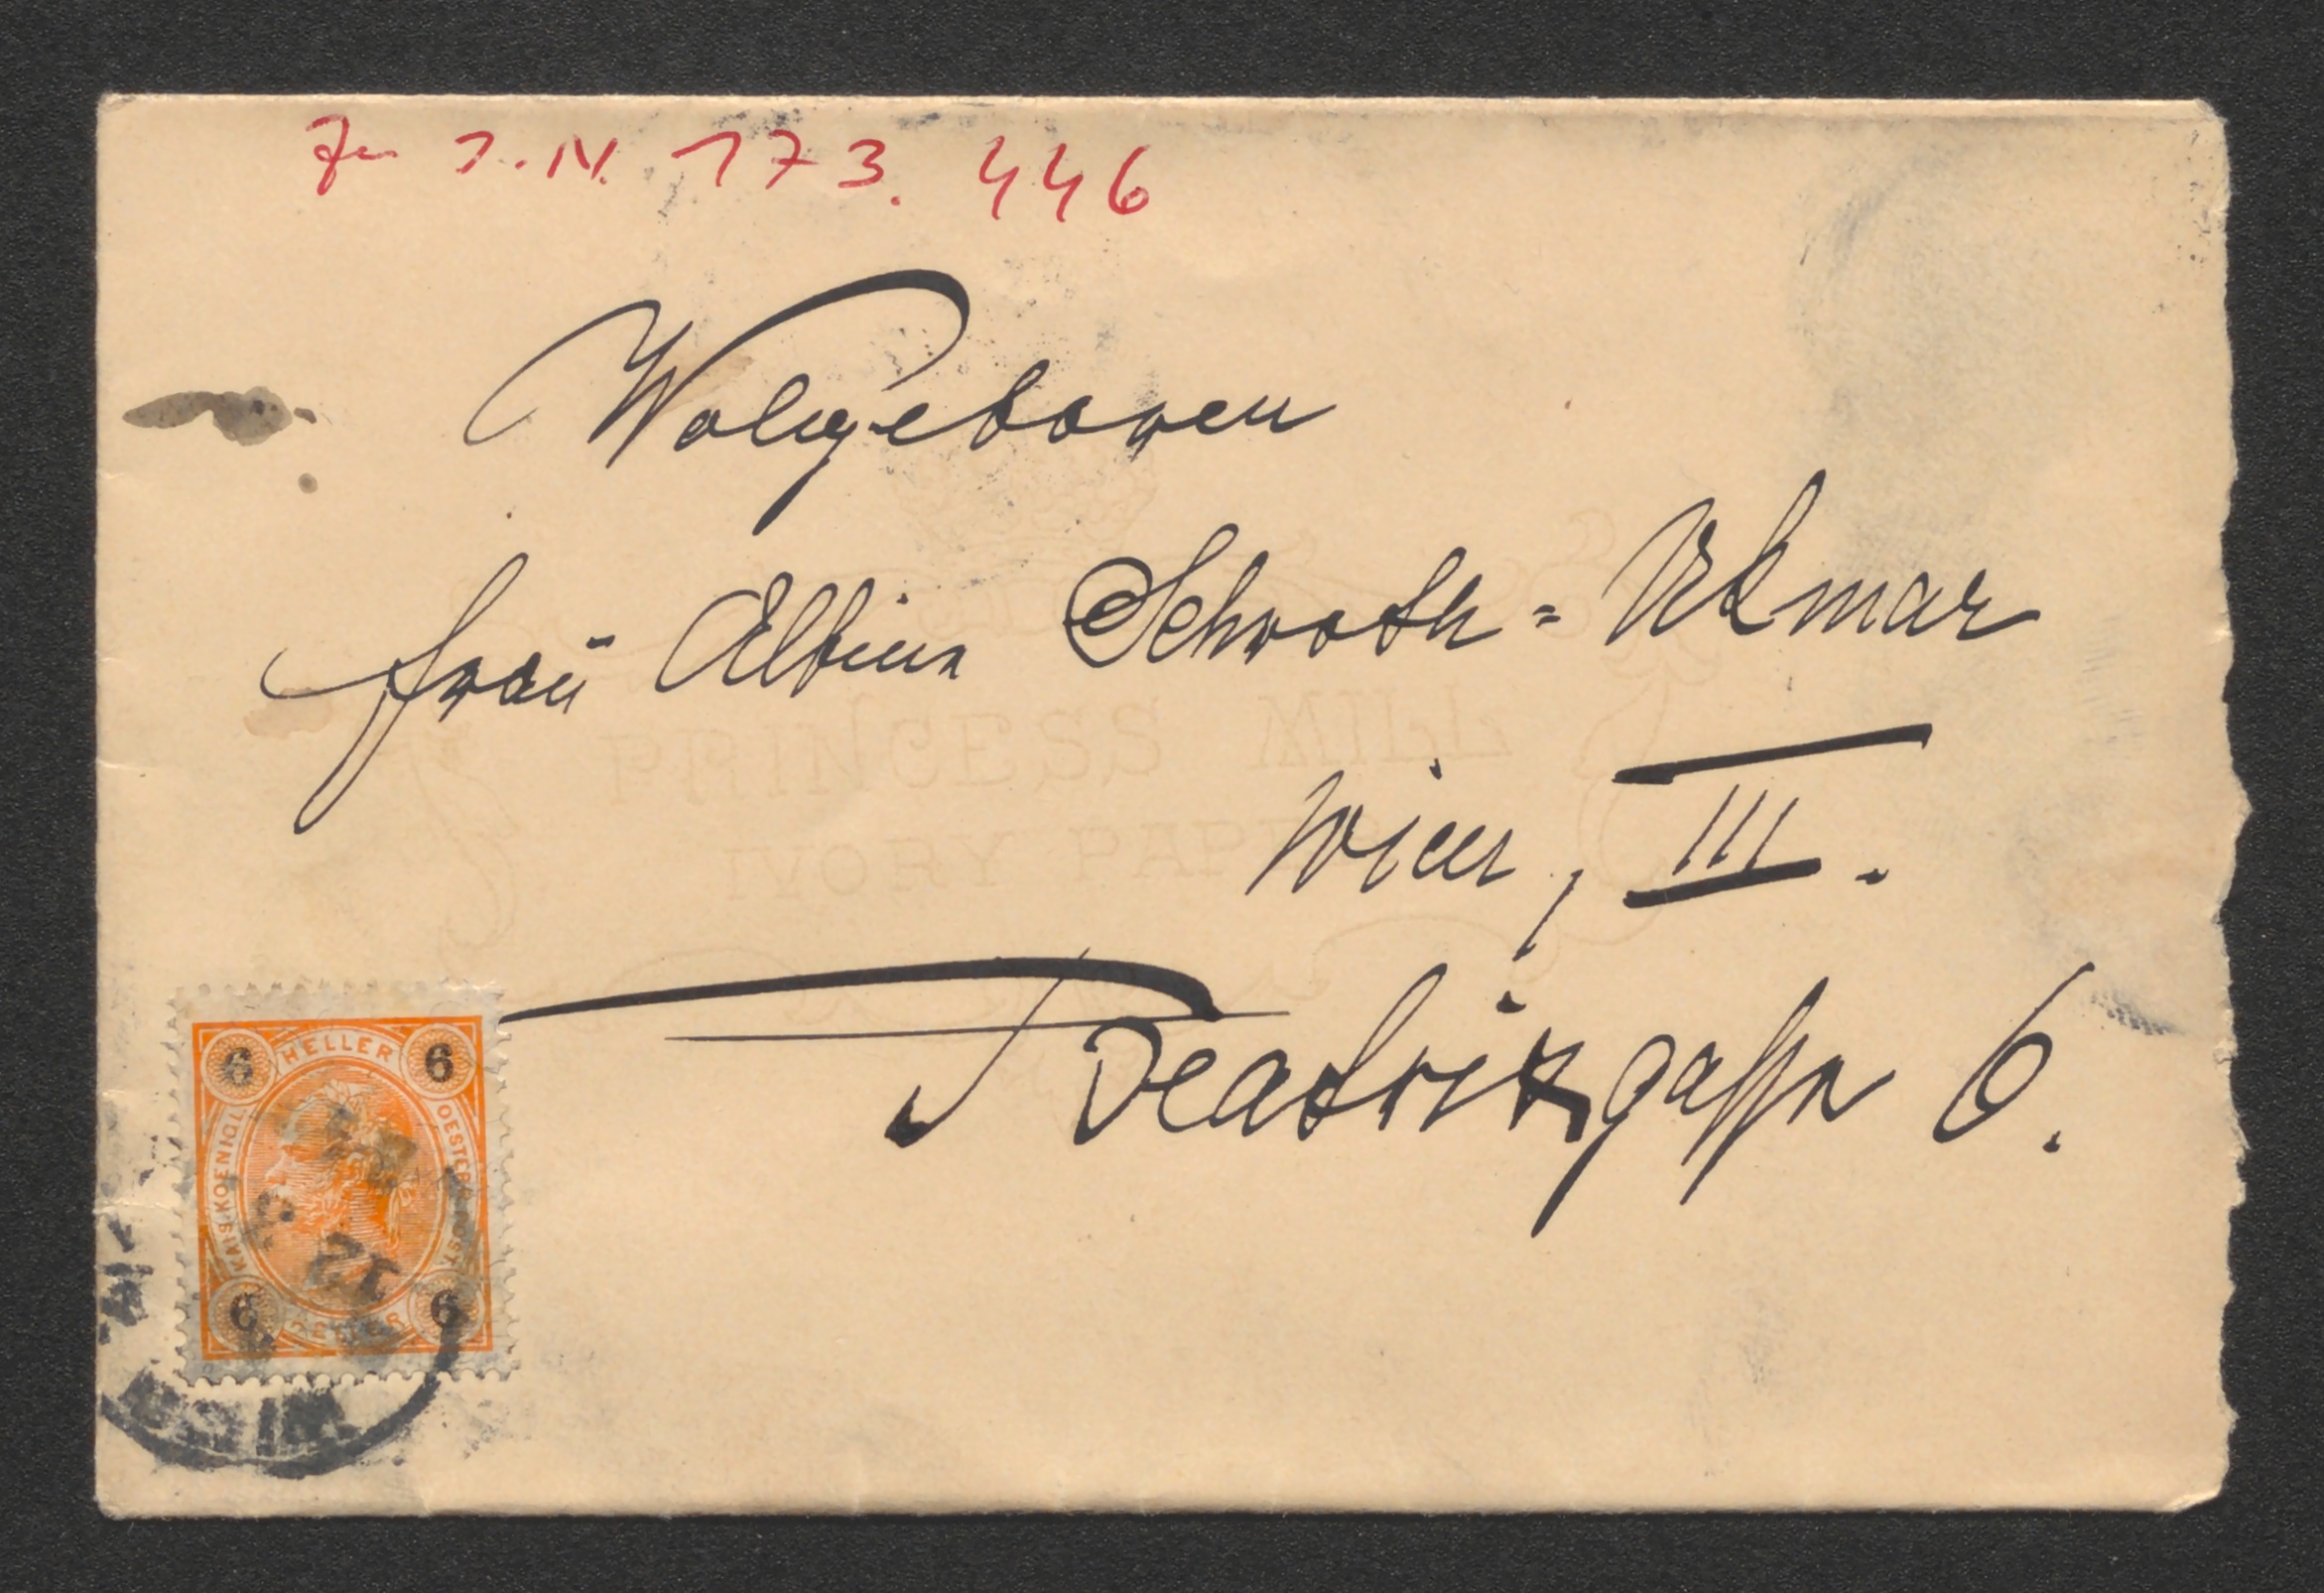 Zu I.N. 173.446
Wolgeboren
Frau Albine Schroth-Ukmar
Wien, III.
Beatrixgasse 6.
PRINCESS MILL
IVORY PAPER
6 HELLER 6
KAIS. KOENIGL. OESTERR. POST
6 HELLER 6
12
WIEN